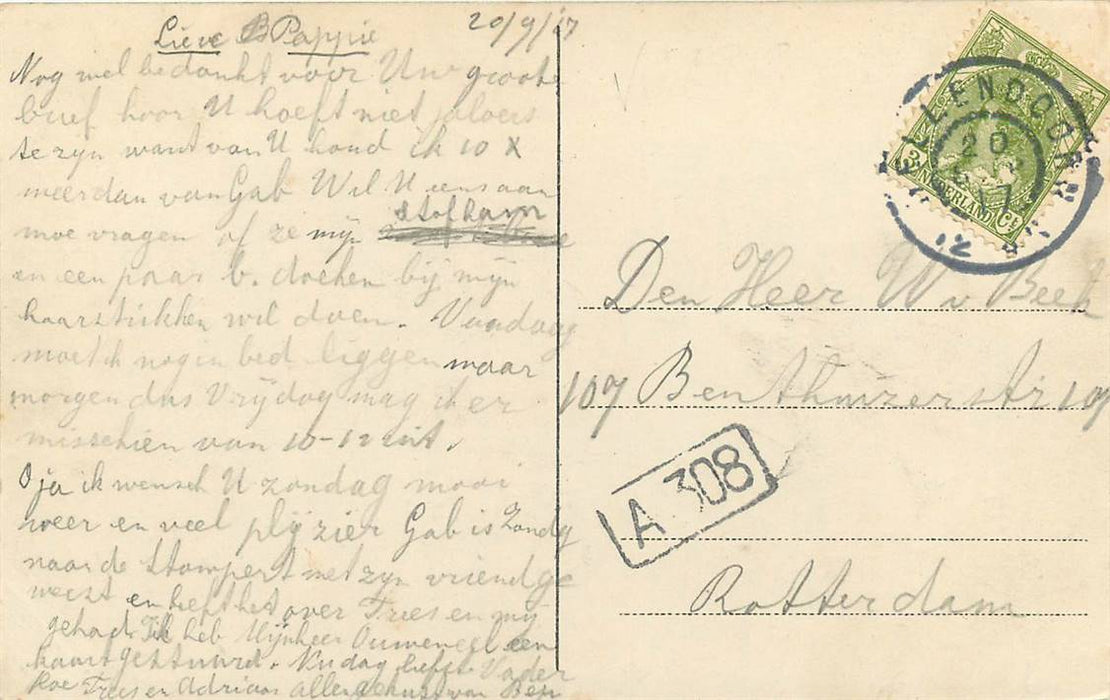 20/9/17
Lieve Pappie
Nog wel bedankt voor Uw groote
brief hoor U hoeft niet jaloers
te zijn want van U houd ik 10 X
meer dan van Gab Wil U eens aan
moe vragen of ze mijn stofkam
en een paar b. doeken bij mijn
haarstrikken wil doen. Vandaag
moet ik nog in bed liggen maar
morgen dus Vrijdag mag ik er
misschien van 10-12 uit.
O ja ik wensch U zondag mooi
weer en veel plijzier Gab is Zondg
naar de Stompert met zijn vriend ge
weest en heeft het over Tries en mij
gehad. Ik heb Mijnheer Ouweneel een
kaart gestuurd. Nu dag liefste Vader
Moe Trees en Adriaan allen gekust van Bep
Den Heer W v Beek
107 Benthuizerstr 107
Rotterdam
A 308
HELLENDOORN
20
NEDERLAND
3 Ct